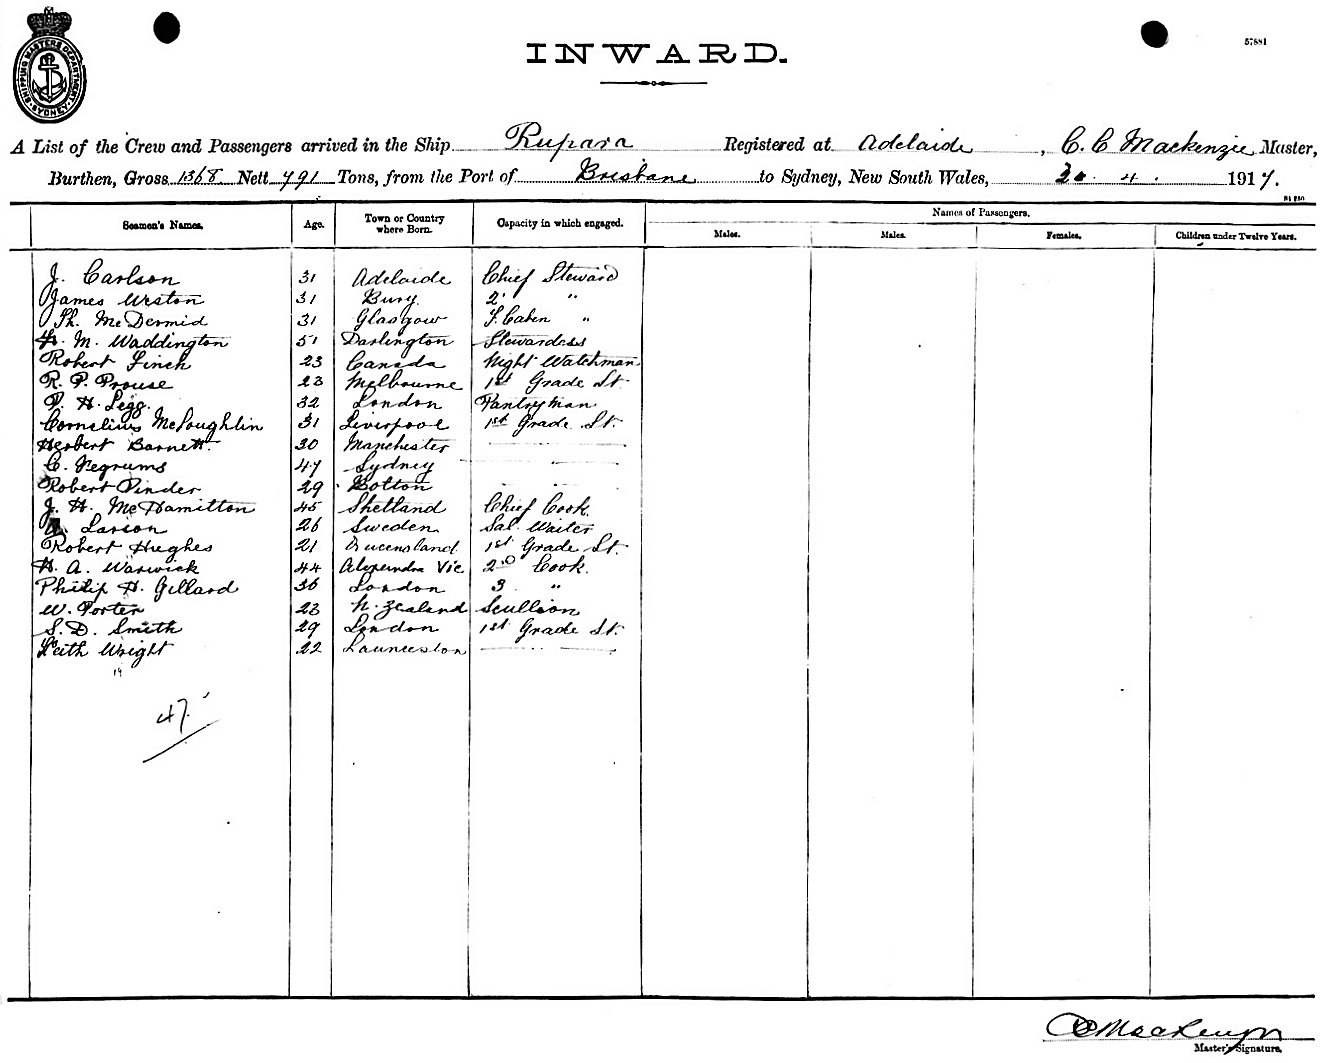 SHIPPING MASTERS DEPARTMENT SYDNEY
57881
INWARD.
A List of the Crew and Passengers arrived in the Ship Rupara Registered at Adelaide, C. C Mackenzie Master,
Burthen, Gross 1368 Nett 791 Tons, from the Port of Brisbane to Sydney, New South Wales, 4. 1917.
Seamen's Names. Age. Town or Country where Born. Capacity in which engaged. Names of Passengers.
Males. Males. Females. Children under Twelve Years.
J. Carlson 31 Adelaide Chief Steward
James Weston 31 Bury. 2 "
McDermid 31 Glasgow Cabin "
M. Waddington 51 Darlington Stewardess
Robert Finch 23 Canada Night Watchman
R. P. Prouse 23 Melbourne 1st Grade St.
H. Legg. 32 London Pantryman
Cornelius McLoughlin 31 Liverpool 1st Grade St.
Herbert Barnett. 30 Manchester
C. Negrums 47 Sydney
Robert Pinder 29 Bolton
J. H. McHamilton 45 Shetland Chief Cook.
Larson 26 Sweden Sal. Waiter
Robert Hughes 21 Queensland 1st Grade St.
H. A. Warwick 44 Alexandra Vic 2nd Cook.
Philip H. Gillard 36 London 3 "
W. Porter 23 N. Zealand Scullion
S. D. Smith 29 London 1st Grade St.
Keith Wright 22 Launceston
19
47
C C Mackenzie
Master's Signature.